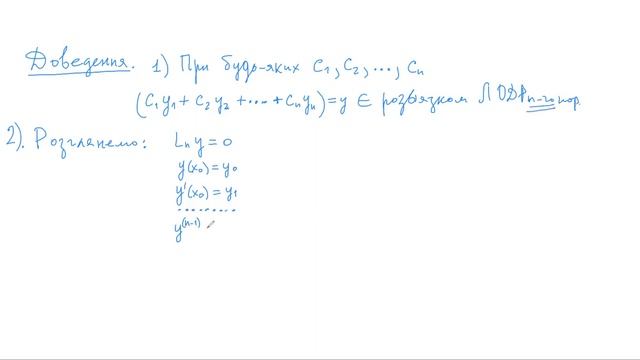 Доведення. 1) При будь-яких C₁, C₂, ..., Cₙ
(C₁y₁ + C₂y₂ + ... + Cₙyₙ) = y є розв'язком ЛОДРn-го пор.
2). Розглянемо: Lₙy = 0
y(x₀) = y₀
y'(x₀) = y₁
..........
y⁽ⁿ⁻¹⁾